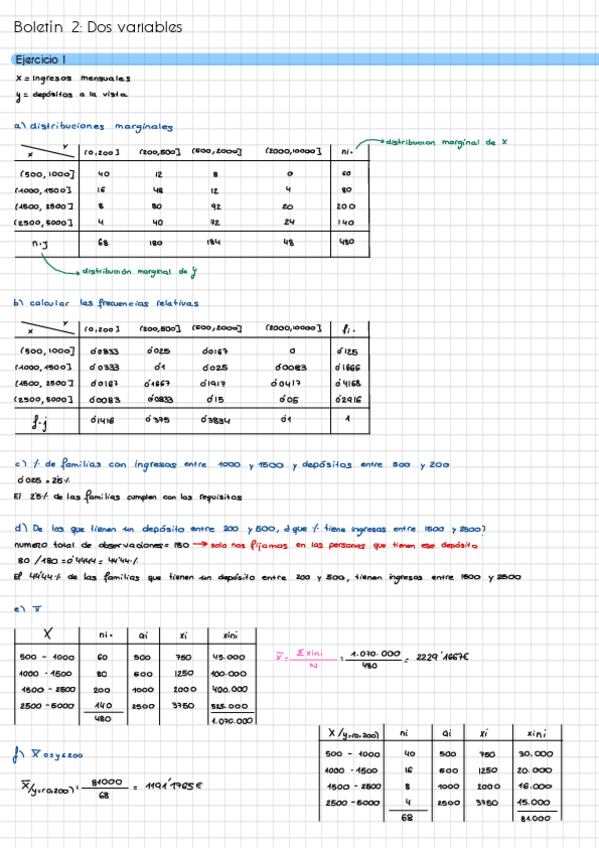 Boletín 2: Dos variables
Ejercicio 1
x = ingresos mensuales
y = depósitos a la vista
a) distribuciones marginales
x y (0,200] (200,500] (500,2000] (2000,10000] ni·
distribución marginal de X
(500,1000] 40 12 8 0 60
(1000,1500] 16 48 12 4 80
(1500,2500] 8 80 92 20 200
(2500,5000] 4 40 72 24 140
n·j 68 180 184 48 480
distribución marginal de y
b) calcular las frecuencias relativas
x y (0,200] (200,500] (500,2000] (2000,10000] fi·
(500,1000] 0'0833 0'025 0'0167 0 0'125
(1000,1500] 0'0333 0'1 0'025 0'0083 0'1666
(1500,2500] 0'0167 0'1667 0'1917 0'0417 0'4168
(2500,5000] 0'0083 0'0833 0'15 0'05 0'2916
f·j 0'1416 0'375 0'3834 0'1 1
c) % de familias con ingresos entre 1000 y 1500 y depósitos entre 500 y 200
0'025 = 2'5%
El 2'5% de las familias cumplen con los requisitos
d) De los que tienen un depósito entre 200 y 500, ¿que % tiene ingresos entre 1500 y 2500?
numero total de observaciones = 180 → solo nos fijamos en las personas que tienen ese depósito
80/180 = 0'4444 = 44'44%
El 44'44% de las familias que tienen un depósito entre 200 y 500, tienen ingresos entre 1500 y 2500
e) x̄
X ni· ai xi xini
500 - 1000 60 500 750 45.000
1000 - 1500 80 500 1250 100.000
1500 - 2500 200 1000 2000 400.000
2500 - 5000 140 2500 3750 525.000
480 1.070.000
x̄ = Σxini / N = 1.070.000 / 480 = 2229'1667€
f) x̄ 0≤y≤200
x̄/y=(0,200) = 81000 / 68 = 1191'1765€
X/y=(0,200) ni ai xi xini
500 - 1000 40 500 750 30.000
1000 - 1500 16 500 1250 20.000
1500 - 2500 8 1000 2000 16.000
2500 - 5000 4 2500 3750 15.000
68 81.000